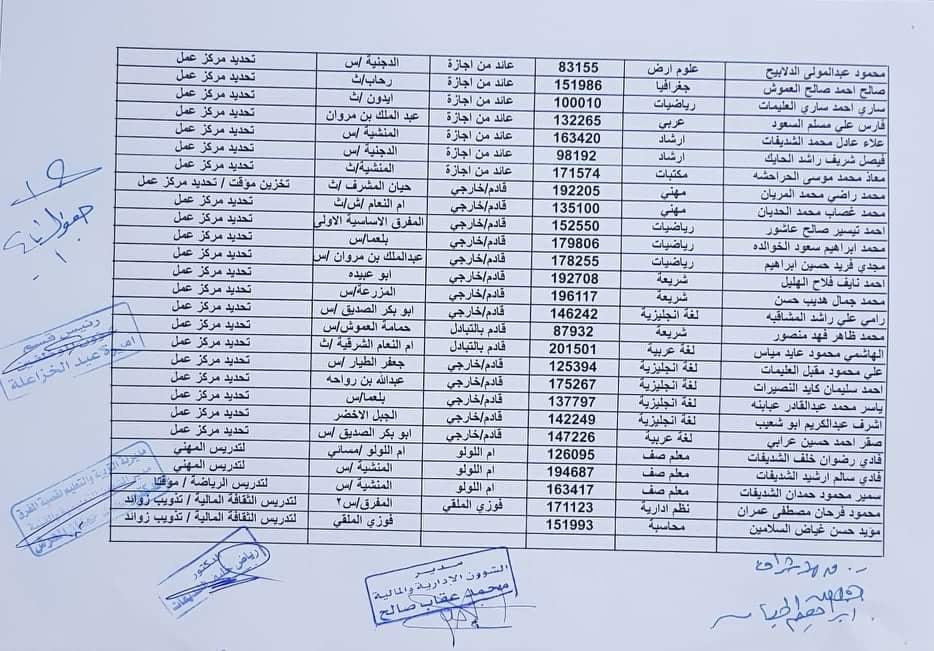 محمود عبدالمولى الدلابيح علوم ارض 83155 عائد من اجازة الدجنية /س تحديد مركز عمل
صالح احمد صالح العموش جغرافيا 151986 عائد من اجازة رحاب/ث تحديد مركز عمل
ساري احمد ساري العليمات رياضيات 100010 عائد من اجازة ايدون /ث تحديد مركز عمل
فارس علي مسلم السعود عربي 132265 عائد من اجازة عبد الملك بن مروان تحديد مركز عمل
علاء عادل محمد الشديفات ارشاد 163420 عائد من اجازة المنشية /س تحديد مركز عمل
فيصل شريف راشد الحايك ارشاد 98192 عائد من اجازة الدجنية /س تحديد مركز عمل
معاذ محمد موسى الحراحشه مكتبات 171574 عائد من اجازة المنشية/ث تحديد مركز عمل
محمد راضي محمد المريان مهني 192205 قادم/خارجي حيان المشرف /ث تخزين مؤقت / تحديد مركز عمل
محمد غصاب محمد الحديان مهني 135100 قادم/خارجي ام النعام /ش/ث تحديد مركز عمل
احمد تيسير صالح عاشور رياضيات 152550 قادم/خارجي المفرق الاساسية الاولى تحديد مركز عمل
محمد ابراهيم سعود الخوالده رياضيات 179806 قادم/خارجي بلعما/س تحديد مركز عمل
مجدي فريد حسين ابراهيم رياضيات 178255 قادم/خارجي عبدالملك بن مروان /س تحديد مركز عمل
احمد نايف فلاح الهليل شريعة 192708 قادم/خارجي ابو عبيده تحديد مركز عمل
محمد جمال هديب حسن شريعة 196117 قادم/خارجي المزرعة/س تحديد مركز عمل
رامي علي راشد المشاقبه لغة انجليزية 146242 قادم/خارجي ابو بكر الصديق /س تحديد مركز عمل
محمد ظاهر فهد منصور شريعة 87932 قادم بالتبادل حمامة العموش/س تحديد مركز عمل
الهاشمي محمود عايد مياس لغة عربية 201501 قادم بالتبادل ام النعام الشرقية /ث تحديد مركز عمل
علي محمود مقبل العليمات لغة انجليزية 125394 قادم/خارجي جعفر الطيار /س تحديد مركز عمل
احمد سليمان كايد النصيرات لغة انجليزية 175267 قادم/خارجي عبدالله بن رواحه تحديد مركز عمل
ياسر محمد عبدالقادر عبابنه لغة انجليزية 137797 قادم/خارجي بلعما/س تحديد مركز عمل
اشرف عبدالكريم ابو شعيب لغة انجليزية 142249 قادم/خارجي الجبل الاخضر تحديد مركز عمل
صقر احمد حسين عرابي لغة عربية 147226 قادم/خارجي ابو بكر الصديق /س تحديد مركز عمل
فادي رضوان خلف الشديفات معلم صف 126095 ام اللولو ام اللولو /مسائي لتدريس المهني
فادي سالم ارشيد الشديفات معلم صف 194687 ام اللولو المنشية /س لتدريس المهني
سمير محمود حمدان الشديفات معلم صف 163417 ام اللولو المنشية /س لتدريس الرياضة / مؤقتا
محمود فرحان مصطفى عمران نظم ادارية 171123 فوزي الملقي المفرق/س٢ لتدريس الثقافة المالية / تذويب زوائد
مؤيد حسن غياض السلامين محاسبة 151993 فوزي الملقي لتدريس الثقافة المالية / تذويب زوائد
رئيس قسم
اميرة عبد الخزاعلة
مديرية التربية والتعليم لقصبة المفرق
الدكتور
رياض
مدير
الشؤون الإدارية والمالية
محمد عقاب صالح